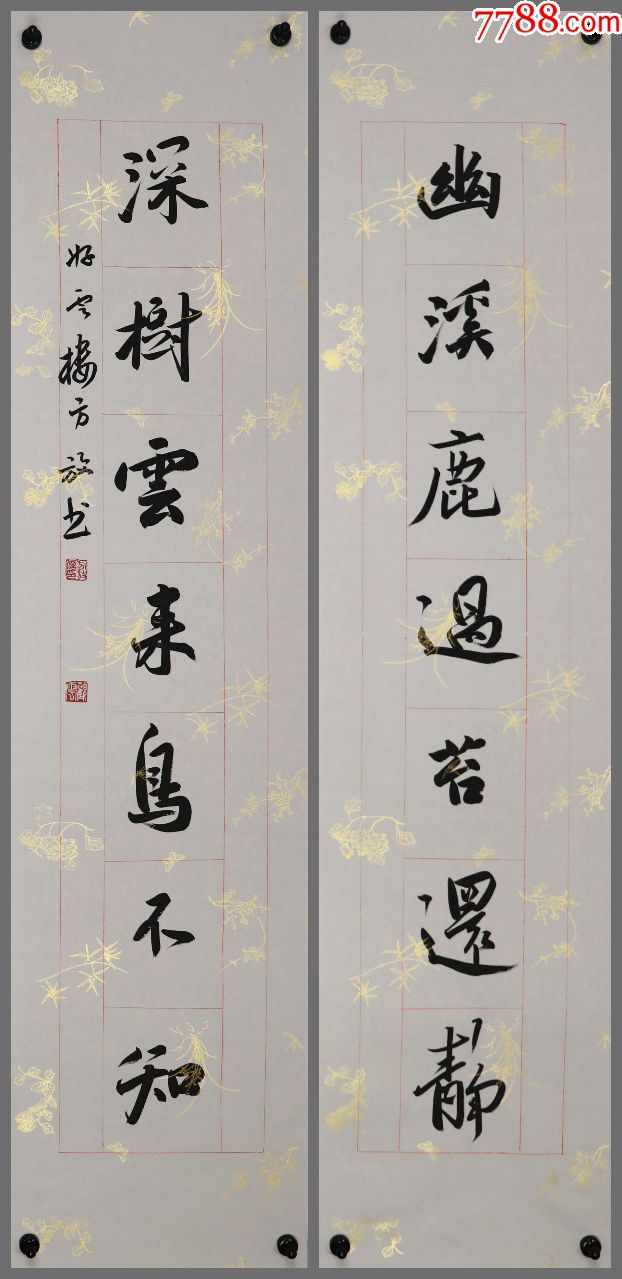 7788.com
幽溪鹿過苔還靜
深樹雲来鳥不知
好雲楼方放书